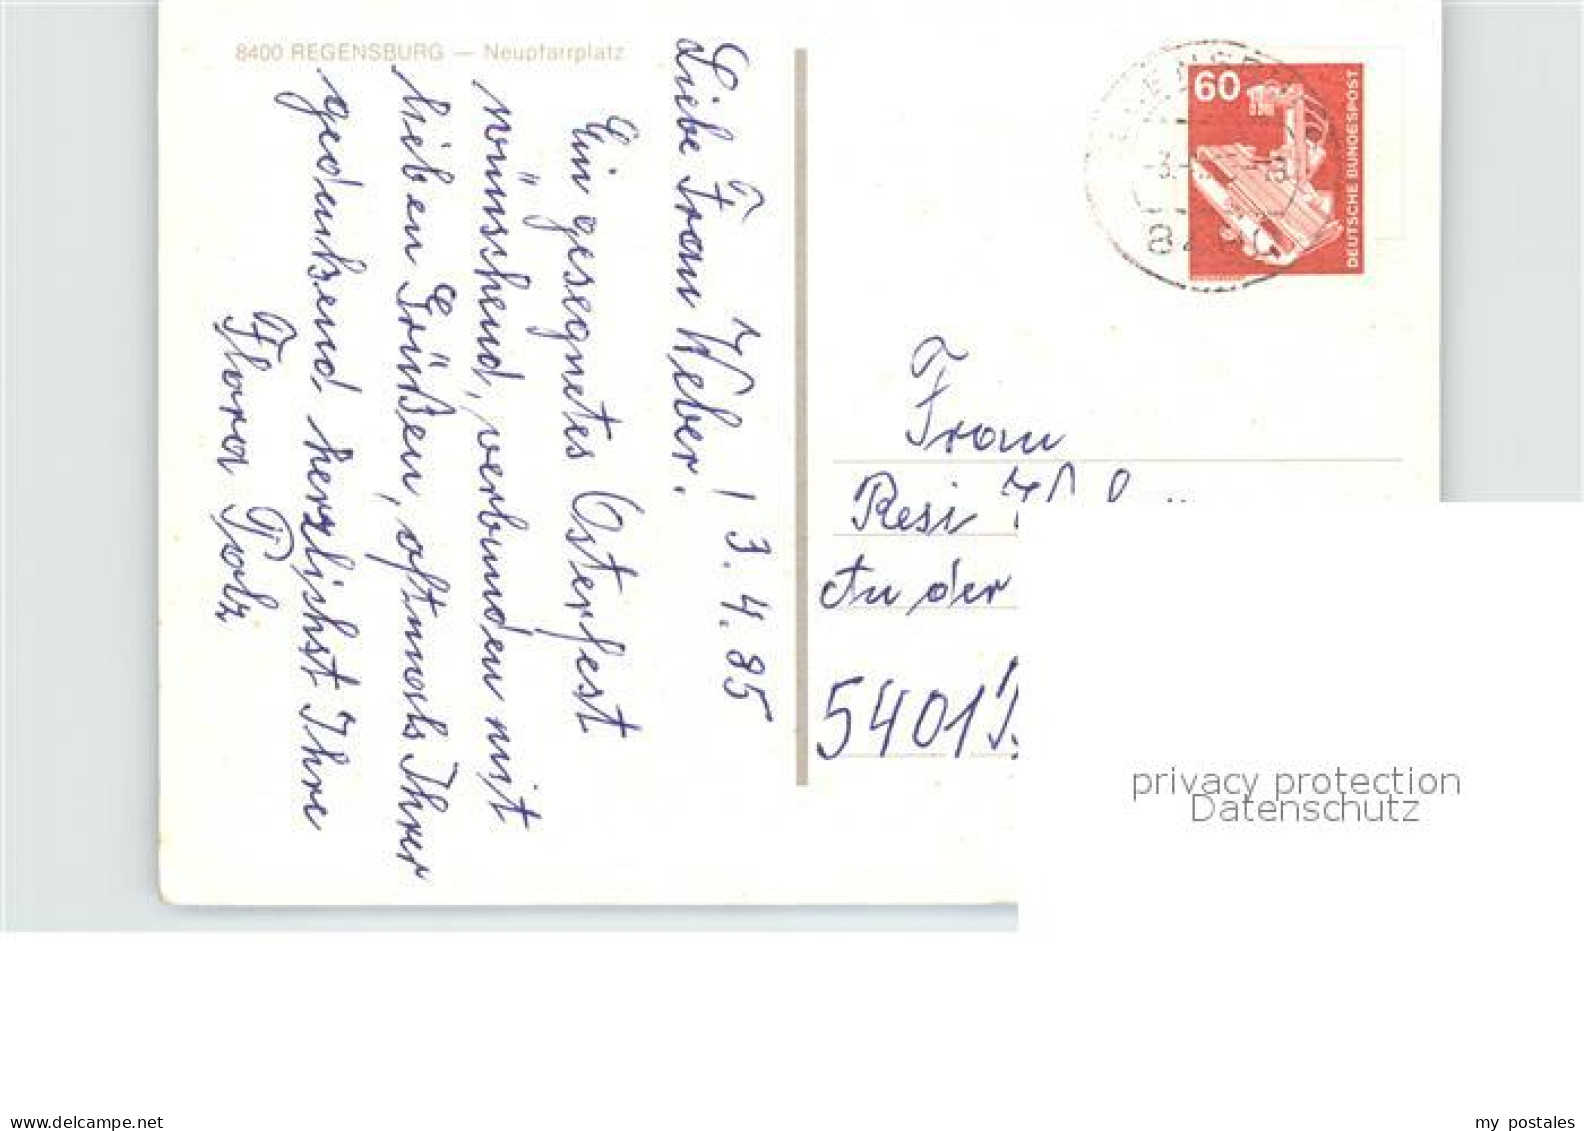 8400 REGENSBURG — Neupfarrplatz
Liebe Frau Weber! 3.4.85
Ein gesegnetes Osterfest
wünschend, verbunden mit
lieben Grüßen, oftmals Ihrer
gedenkend, herzlichst Ihre
Flora
60
DEUTSCHE BUNDESPOST
Frau
Resi
An der
5401
privacy protection
Datenschutz
www.delcampe.net
my postales